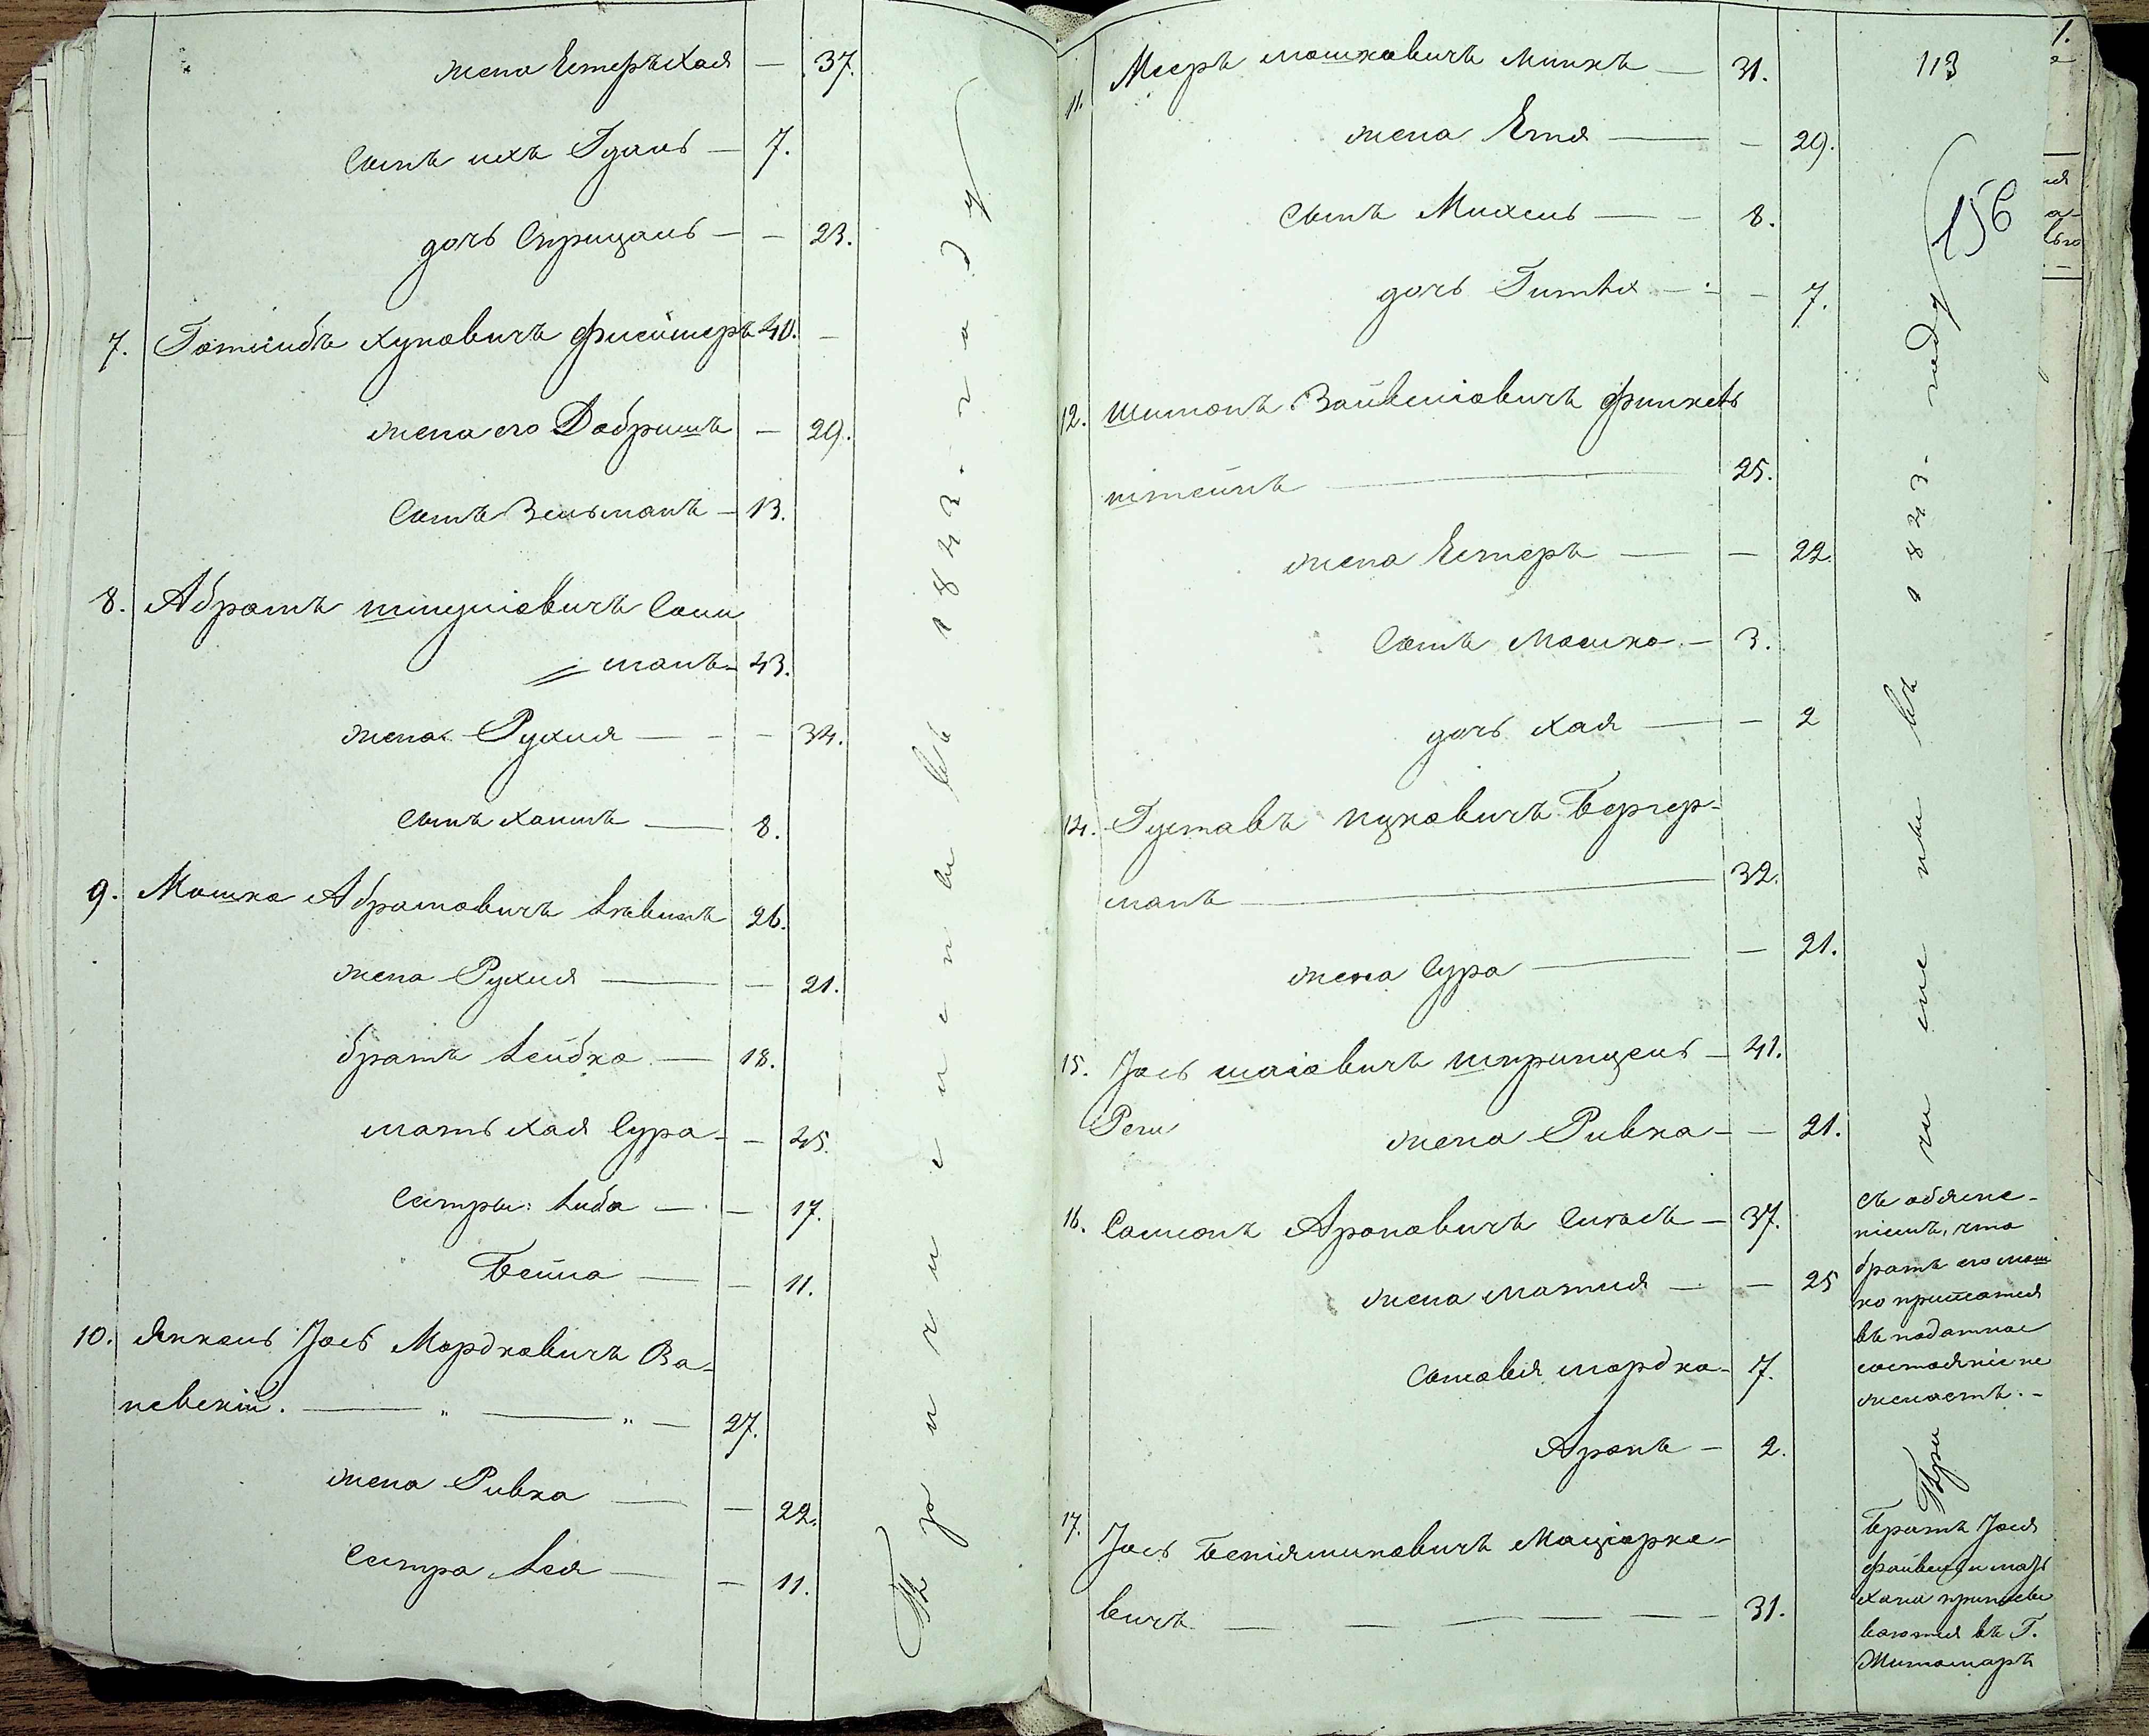 жена Естеръ Хая — 37.
сынъ ихъ Гдаль — 7.
дочь Спринцаль — — 23.
7. Готлибъ Хуновичъ Флейшеръ 40. —
жена его Добришъ — 29.
сынъ Зельманъ — 13.
8. Абрамъ Шмулiовичъ Сои
= манъ — 43.
жена Рухля — — — 34.
сынъ Хаимъ — 8.
9. Мошко Абрамовичъ Левинъ 26.
жена Рухля — — 21.
братъ Лейбко — 18.
мать Хая Сура — — 45.
сестры: Либа — — 17.
Бейла — — 11.
10. Янкель Іось Мордковичъ Ва-
невскій. — „ — „ — 27.
жена Ривка — — 22.
сестра Лея — — 11.
Причислены въ 1843. году
113
156
11. Мееръ Мошковичъ Минкъ — 31.
жена Етя — — 29.
сынъ Михель — — 8.
дочь Гитля — — 7.
12. Шимонъ Зайвелiовичъ Финкель
штейнъ — 25.
жена Естеръ — — 22.
сынъ Мошко — 3.
дочь Хая — — 2
14. Густавъ Ицковичъ Бергер-
манъ — 32.
жена Сура — — 21.
15. Іось Шаiовичъ Шпринцель — 41.
жена Ривка — — 21.
16. Самсонъ Ароновичъ Сигалъ — 37.
жена Матля — — 25
сыновья Мордко — 7.
Аронъ — 2.
17. Іось Бенiяминовичъ Мацiорко-
вичъ — — — — 31.
Причислены въ 1843. году
съ объясне-
нiемъ, что
братъ его Мош
ко приписатся
въ податное
состоянiе не
желаетъ. —
Братъ Іося
Файвель и мать
Хана приписы
ваются въ Г.
Житомиръ